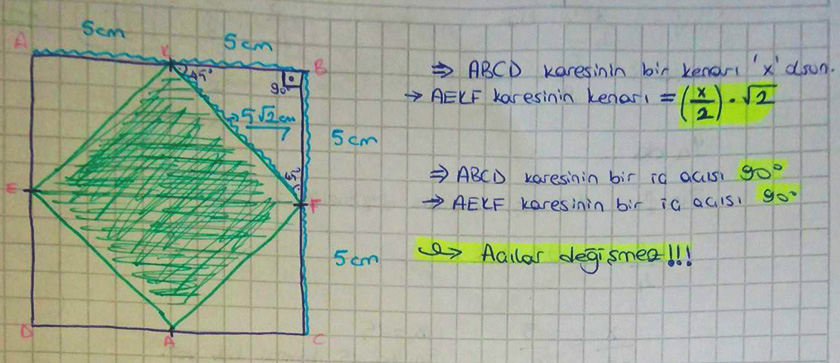 5cm
5cm
A
K
B
45°
90°
5√2 cm
5cm
45°
E
F
5cm
D
A
C
⇒ ABCD karesinin bir kenarı 'x' olsun.
→ AEKF karesinin kenarı = (x/2) · √2
⇒ ABCD karesinin bir iç açısı 90°
→ AEKF karesinin bir iç açısı 90°
→ Açılar değişmez!!!